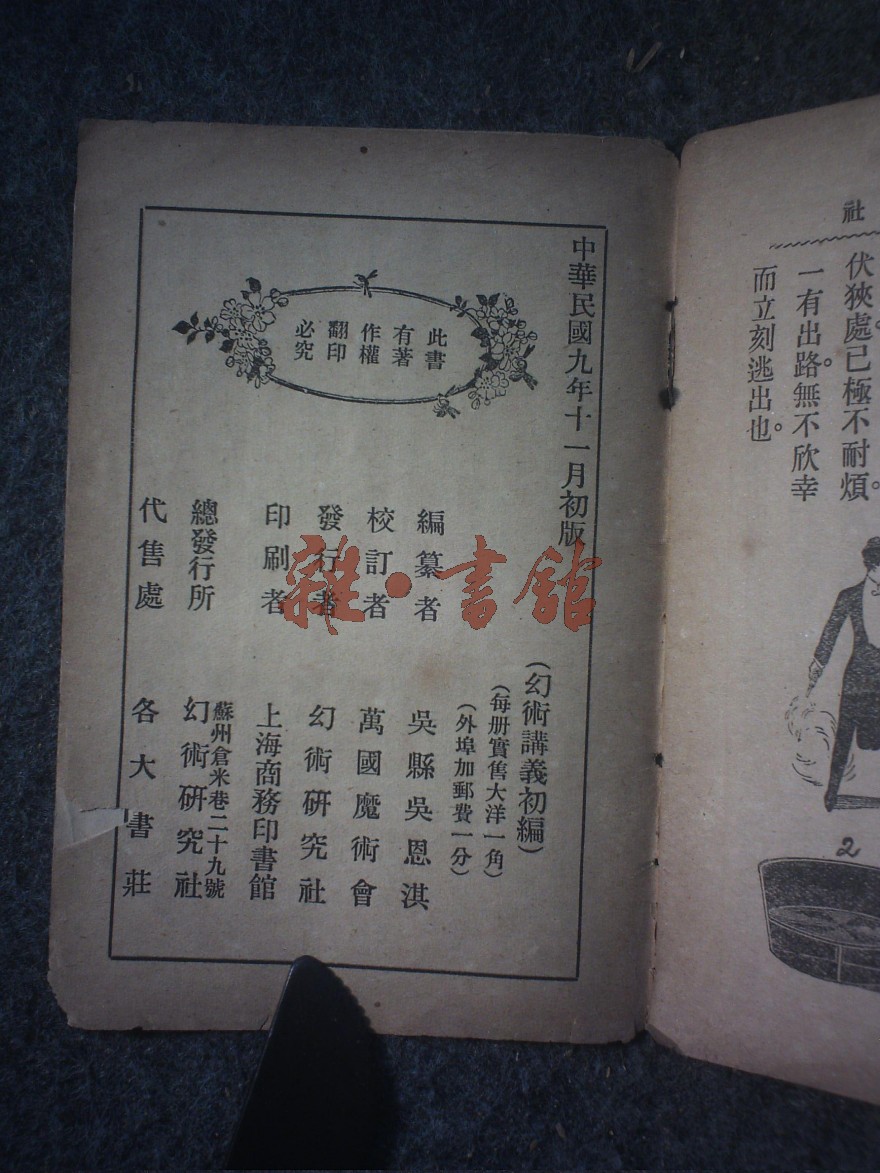 社
伏狹處。已極不耐煩。
一有出路。無不欣幸
而立刻逃出也。
2
中華民國九年十一月初版
此書
有著
作權
翻印
必究
(幻術講義初編)
(每册實售大洋一角)
(外埠加郵費一分)
編纂者 吳縣吳恩淇
校訂者 萬國魔術會
發行者 幻術研究社
印刷者 上海商務印書館
總發行所 蘇州倉米巷二十九號
幻術研究社
代售處 各大書莊
雜·書館